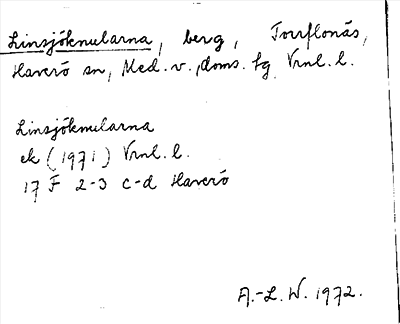 Linsjöknularna, berg, Torrflonäs,
Haverö sn, Med. v., doms. fg. Vrnl. l.
Linsjöknularna
ek (1971) Vrnl. l.
17 F 2-3 c-d Haverö
A.-L. W. 1972.